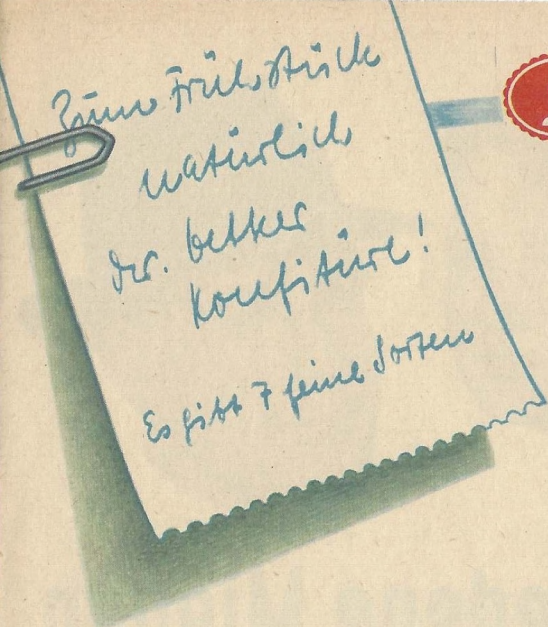 Zum Frühstück
natürlich
Dr. Oetker
Konfitüre!
Es gibt 7 feine Sorten